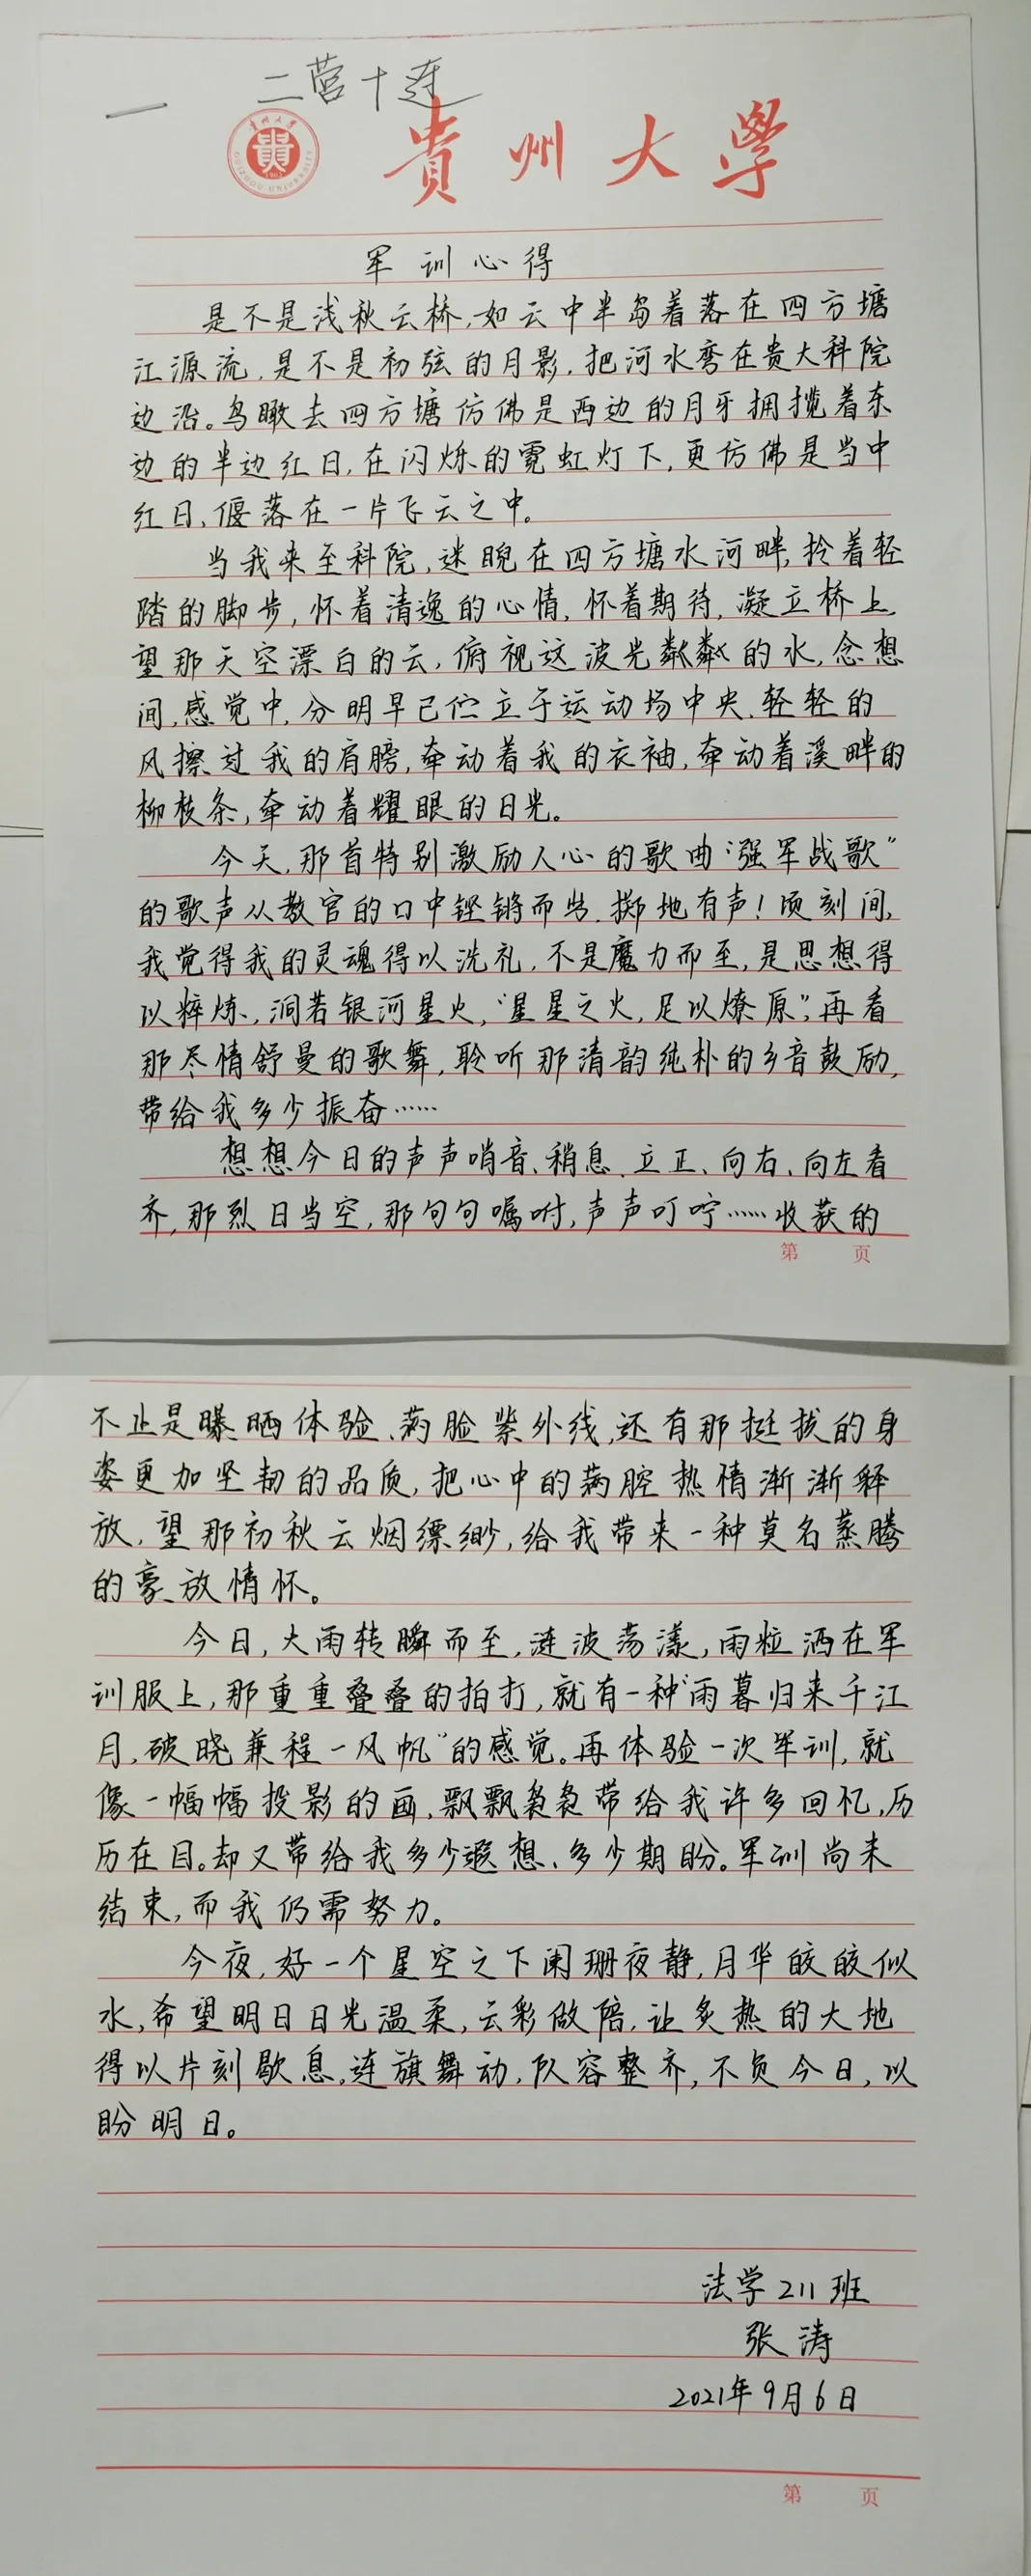 二营十连
貴州大學
军训心得
是不是浅秋云桥，如云中半岛着落在四方塘
江源流，是不是初弦的月影，把河水弯在贵大科院
边沿。鸟瞰去四方塘仿佛是西边的月牙拥揽着东
边的半边红日，在闪烁的霓虹灯下，更仿佛是当中
红日，偃落在一片飞云之中。
当我来至科院，迷睨在四方塘水河畔，拎着轻
踏的脚步，怀着清逸的心情，怀着期待，凝立桥上，
望那天空漂白的云，俯视这波光粼粼的水，念想
间，感觉中，分明早已伫立于运动场中央，轻轻的
风擦过我的肩膀，牵动着我的衣袖，牵动着溪畔的
柳枝条，牵动着耀眼的日光。
今天，那首特别激励人心的歌曲“强军战歌”
的歌声从教官的口中铿锵而出，掷地有声！顷刻间，
我觉得我的灵魂得以洗礼，不是魔力而至，是思想得
以粹炼，洞若银河星火，“星星之火，足以燎原”，再看
那尽情舒曼的歌舞，聆听那清韵纯朴的乡音鼓励，
带给我多少振奋……
想想今日的声声哨音、稍息、立正、向右、向左看
齐，那烈日当空，那句句嘱咐，声声叮咛……收获的
第 页
不止是曝晒体验、满脸紫外线，还有那挺拔的身
姿更加坚韧的品质，把心中的满腔热情渐渐释
放，望那初秋云烟缥缈，给我带来一种莫名蒸腾
的豪放情怀。
今日，大雨转瞬而至，涟波荡漾，雨粒洒在军
训服上，那重重叠叠的拍打，就有一种“雨暮归来千江
月，破晓兼程一风帆”的感觉。再体验一次军训，就
像一幅幅投影的画，飘飘袅袅带给我许多回忆，历
历在目。却又带给我多少遐想、多少期盼。军训尚未
结束，而我仍需努力。
今夜，好一个星空之下阑珊夜静，月华皎皎似
水，希望明日日光温柔，云彩做陪，让炙热的大地
得以片刻歇息，连旗舞动，队容整齐，不负今日，以
盼明日。
法学211班
张涛
2021年9月6日
第 页